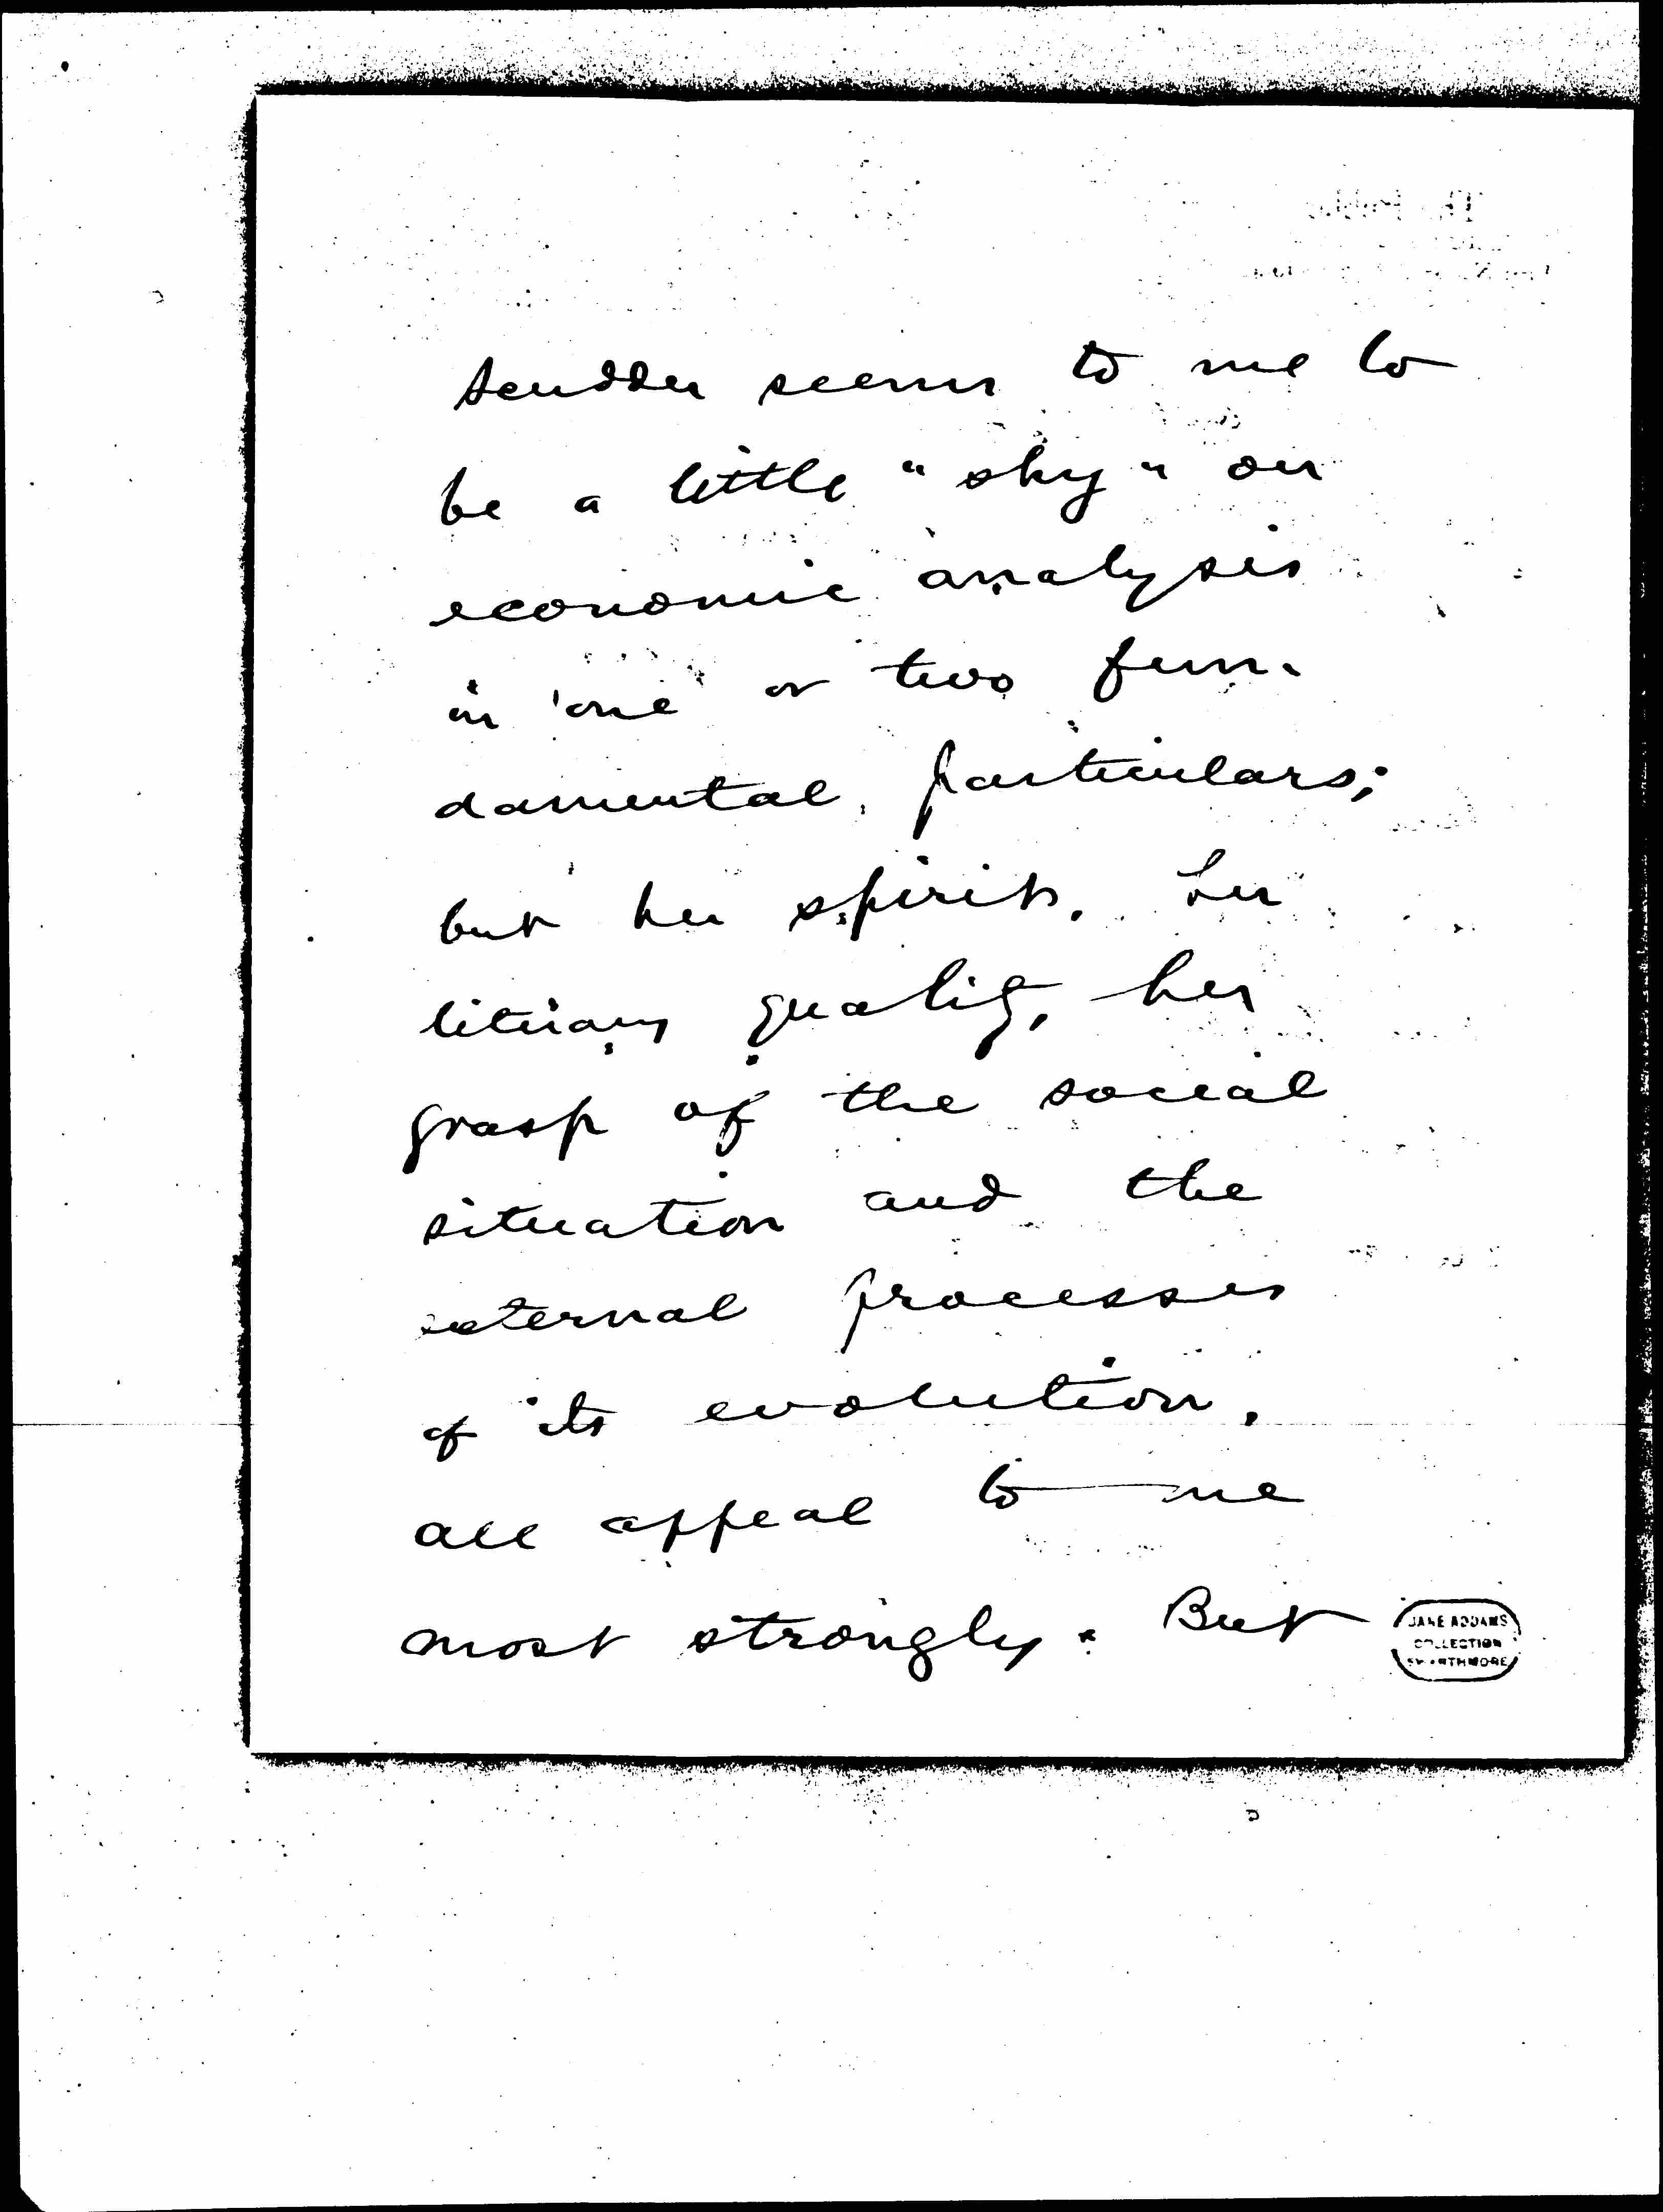 Scudder seems to me to
be a little "shy" on
economic analysis
in one or two fun-
damental particulars;
but her spirit, her
literary quality, her
grasp of the social
situation and the
external processes
of its evolution,
all appeal to me
most strongly. But
JANE ADDAMS
COLLECTION
SWARTHMORE